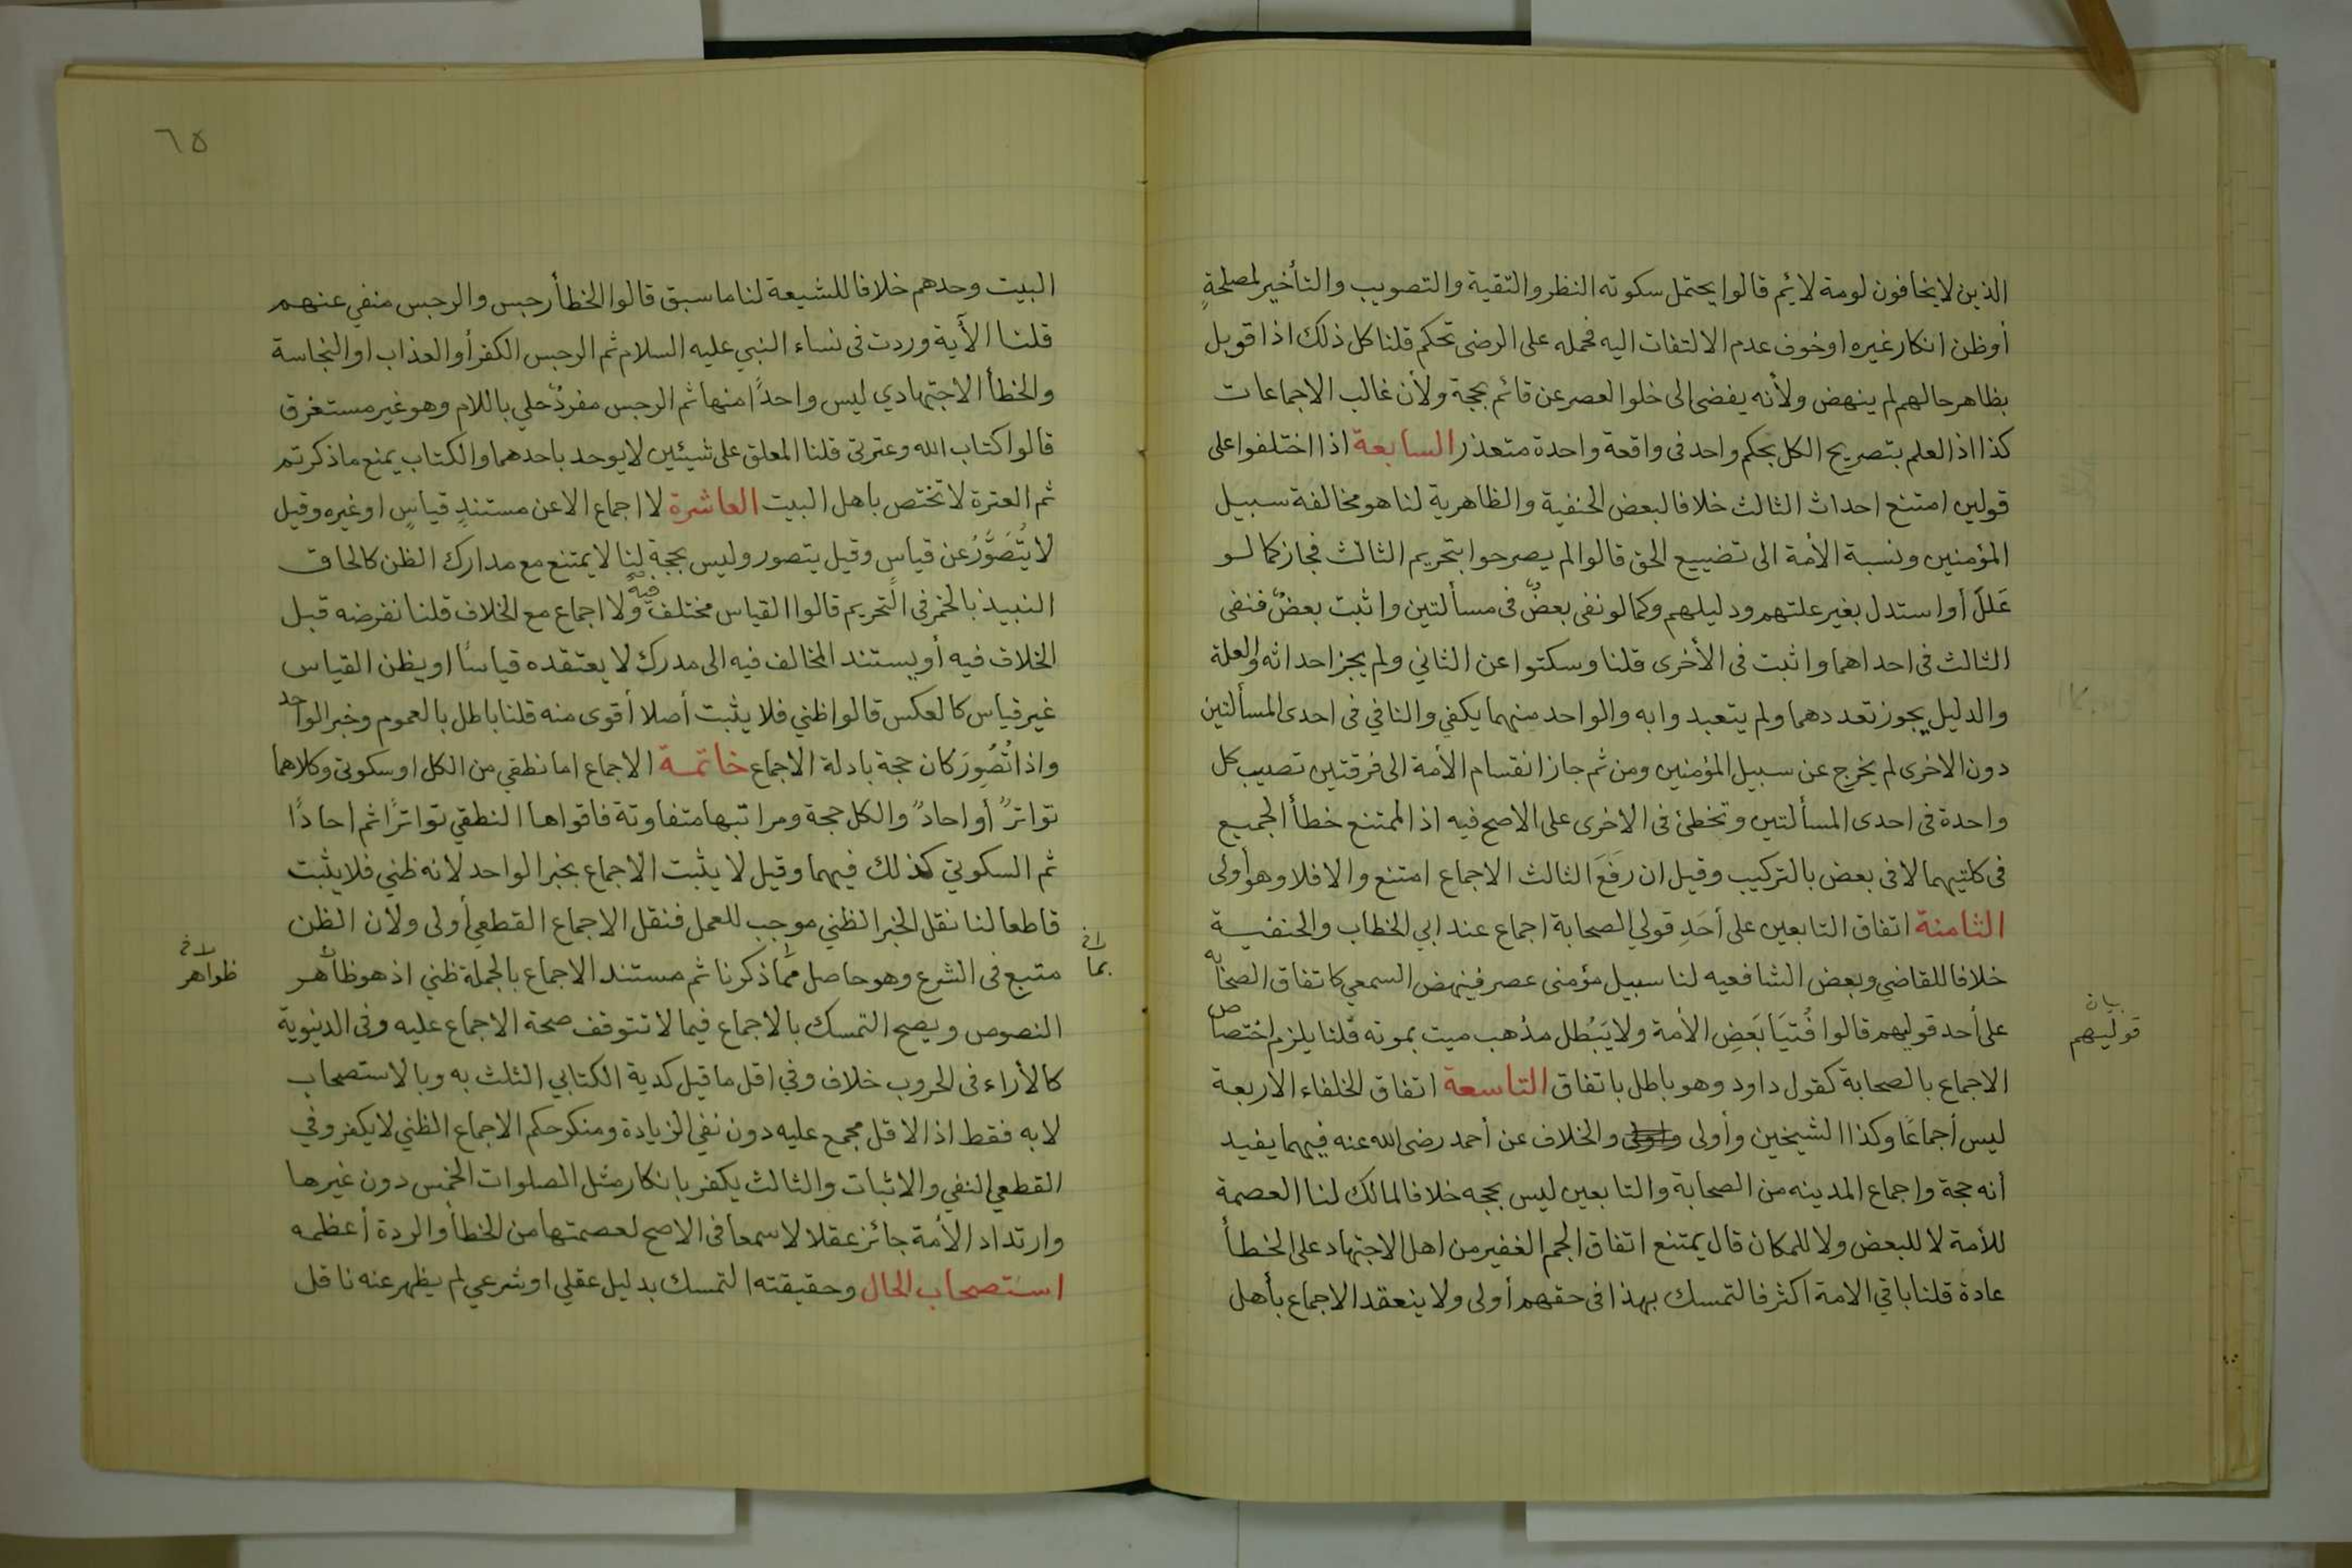 الذين لا يخافون لومة لائم قالوا يحتمل سكوته النظر والتقية والتصويب والتأخير لمصلحةٍ
أو ظن انكار غيره او خوف عدم الالتفات اليه فحمله على الرضى تحكم قلنا كل ذلك اذا قوبل
بظاهر حالهم لم ينهض ولأنه يفضى الى خلو العصر عن قائم بحجة ولأن غالب الاجماعات
كذا اذ العلم بتصريح الكل بحكم واحد فى واقعة واحدة متعذر السابعة اذا اختلفوا على
قولين امتنع احداث الثالث خلافا لبعض الحنفية والظاهرية لنا هو مخالفة سبيل
المؤمنين ونسبة الأمة الى تضييع الحق قالوا لم يصرحوا بتحريم الثالث فجاز كما لو
عَللَ أو استدل بغير علتهم ودليلهم وكما لو نفى بعضٌ فى مسألتين واثبت بعضٌ فنفى
الثالث فى احداهما واثبت فى الأخرى قلنا وسكتوا عن الثاني ولم يجز احداثه والعلة
والدليل يجوز تعددهما ولم يتعبدوا به والواحد منهما يكفي والنافي فى احدى المسألتين
دون الاخرى لم يخرج عن سبيل المؤمنين ومن ثم جاز انقسام الأمة الى فرقتين تصيب كل
واحدة فى احدى المسألتين وتخطئ فى الاخرى على الاصح فيه اذ الممتنع خطأ الجميع
فى كلتيهما لا فى بعض بالتركيب وقيل ان رَفَعَ الثالث الاجماع امتنع والا فلا وهو أولى
الثامنة اتفاق التابعين على أحَدِ قولي الصحابة اجماع عند ابي الخطاب والحنفية
خلافا للقاضي وبعض الشافعيه لنا سبيل مؤمنى عصر فينهض السمعي كاتفاق الصحابه
على أحد قوليهم قالوا فُتيَا بَعَضِ الأمة ولا يَبُطل مذهب ميت بموته قلنا يلزم اختصاص
بيان
قوليهم
الاجماع بالصحابة كقول داود وهو باطل باتفاق التاسعة اتفاق الخلفاء الاربعة
ليس أجماعًا وكذا الشيخين وأولى والخلاف عن أحمد رضى الله عنه فيهما يفيد
أنه حجة واجماع المدينه من الصحابة والتابعين ليس بحجه خلافا لمالك لنا العصمة
للأمة لا للبعض ولا للمكان قال يمتنع اتفاق الجم الغفير من اهل الاجتهاد على الخطأ
عادة قلنا باقي الامة اكثر فالتمسك بهذا فى حقهم أولى ولا ينعقد الاجماع بأهل
٦٥
البيت وحدهم خلافا للشيعة لنا ما سبق قالوا الخطأ رجس والرجس منفي عنهم
قلنا الآية وردت فى نساء النبي عليه السلام ثم الرجس الكفر أو العذاب او النجاسة
والخطأ الاجتهادي ليس واحدًا منها ثم الرجس مفردٌ حلي باللام وهو غير مستغرق
قالوا كتاب الله وعترتى قلنا المعلق على شيئين لا يوحد باحدهما والكتاب يمنع ما ذكرتم
ثم العترة لا تختص باهل البيت العاشرة لا اجماع الا عن مستندٍ قياسٍ او غيره وقيل
لا يُتُصَوَّرُ عن قياسٍ وقيل يتصور وليس بحجة لنا لا يمتنع مع مدارك الظن كالحاق
النبيذ بالخمر فى التحريم قالوا القياس مختلف فيه ولا اجماع مع الخلاف قلنا نفرضه قبل
الخلاف فيه أو يستند المخالف فيه الى مدرك لا يعتقده قياسًا او يظن القياس
غير قياس كالعكس قالوا ظني فلا يثبت أصلا أقوى منه قلنا باطل بالعموم وخبر الواحد
واذا تُصُوِرَ كان حجة بادلة الاجماع خاتمة الاجماع اما نطقي من الكل او سكوتى وكلاهما
تواترٌ أو احادٌ والكل حجة ومراتبها متفاوتة فاقواها النطقي تواترًا ثم احادًا
ثم السكوتي كذلك فيهما وقيل لا يثبت الاجماع بخبر الواحد لانه ظني فلا يثبت
قاطعا لنا نقل الخبر الظني موجب للعمل فنقل الاجماع القطعي أولى ولان الظن
متبع فى الشرع وهو حاصل مما ذكرنا ثم مستند الاجماع بالجملة ظني اذ هو ظاهر
بما
ظواهر
النصوص ويصح التمسك بالاجماع فيما لا تتوقف صحة الاجماع عليه وفى الدنيوية
كالأراء فى الحروب خلاف وفي اقل ما قيل كدية الكتابي الثلث به وبالاستصحاب
لا به فقط اذ الاقل مجمع عليه دون نفي الزيادة ومنكر حكم الاجماع الظني لا يكفر وفي
القطعي النفي والاثبات والثالث يكفر بانكار مثل الصلوات الخمس دون غيرها
وارتداد الأمة جائز عقلا لا سمعا فى الاصح لعصمتها من الخطأ والردة أعظمه
استصحاب الحال وحقيقته التمسك بدليل عقلي او شرعي لم يظهر عنه ناقل